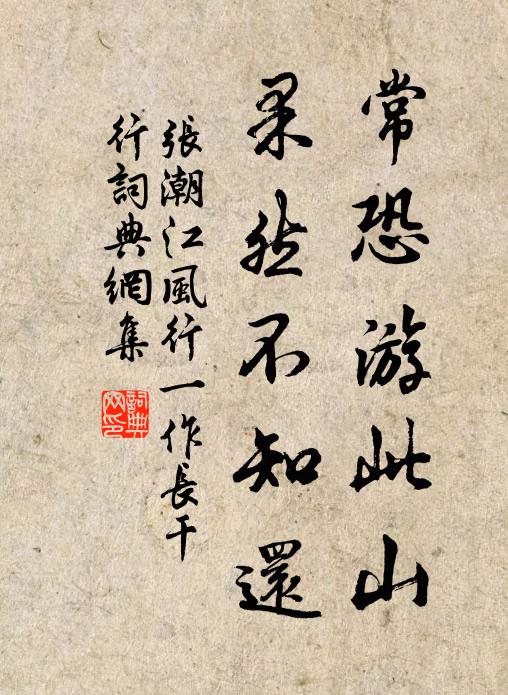 常恐游此山
果然不知還
張潮江風行一作長干
行詞典網集
詞典
网印